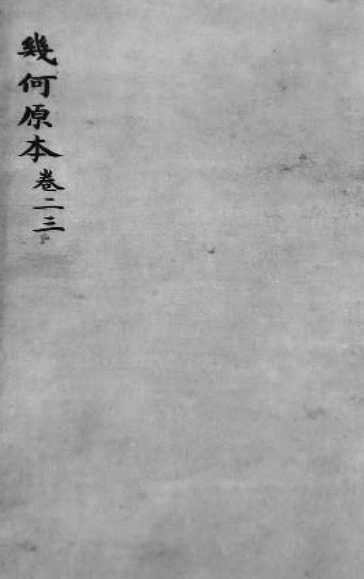 幾何原本卷二三